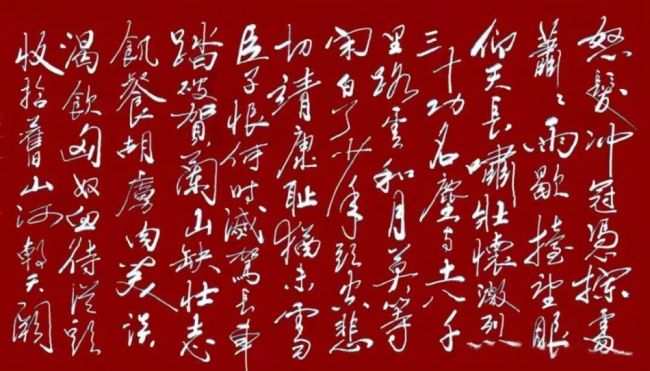 怒髮冲冠憑欄處
蕭々雨歇擡望眼
仰天長嘯壯懷激烈
三十功名塵与土八千
里路雲和月莫等
闲白了少年頭空悲
切靖康耻猶未雪
臣子恨何時滅駕長車
踏破賀蘭山缺壯志
飢餐胡虜肉笑談
渴飲匈奴血待從頭
收拾舊山河朝天闕